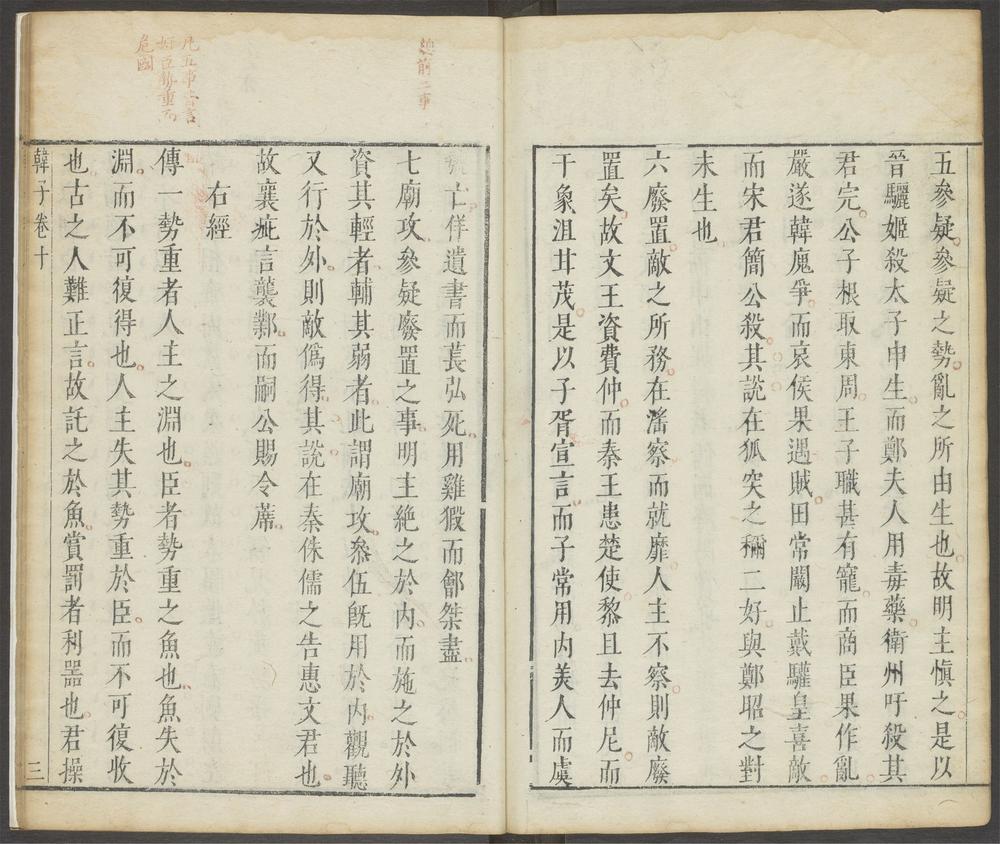 五參疑參疑之勢亂之所由生也故明主慎之是以
晉驪姬殺太子申生而鄭夫人用毒藥衛州吁殺其
君完公子根取東周王子職甚有寵而商臣果作亂
嚴遂韓廆爭而哀侯果遇賊田常闞止戴驩皇喜敵
而宋君簡公殺其説在狐突之稱二好與鄭昭之對
未生也
六廢置敵之所務在濳察而就靡人主不察則敵廢
置矣故文王資費仲而秦王患楚使黎且去仲尼而
干象沮甘茂是以子胥宣言而子常用内美人而虞
總前二事
虢亡佯遺書而萇弘死用雞猳而鄶桀盡
七廟攻參疑廢置之事明主絶之於内而施之於外
資其輕者輔其弱者此謂廟攻叅伍旣用於内觀聽
又行於外則敵僞得其説在秦侏儒之告惠文君也
故襄疵言襲鄴而嗣公賜令蓆
右經
凡五事皆言
奸臣勢重而
危國
傳一勢重者人主之淵也臣者勢重之魚也魚失於
淵而不可復得也人主失其勢重於臣而不可復收
也古之人難正言故託之於魚賞罰者利噐也君操
韓子卷十
三